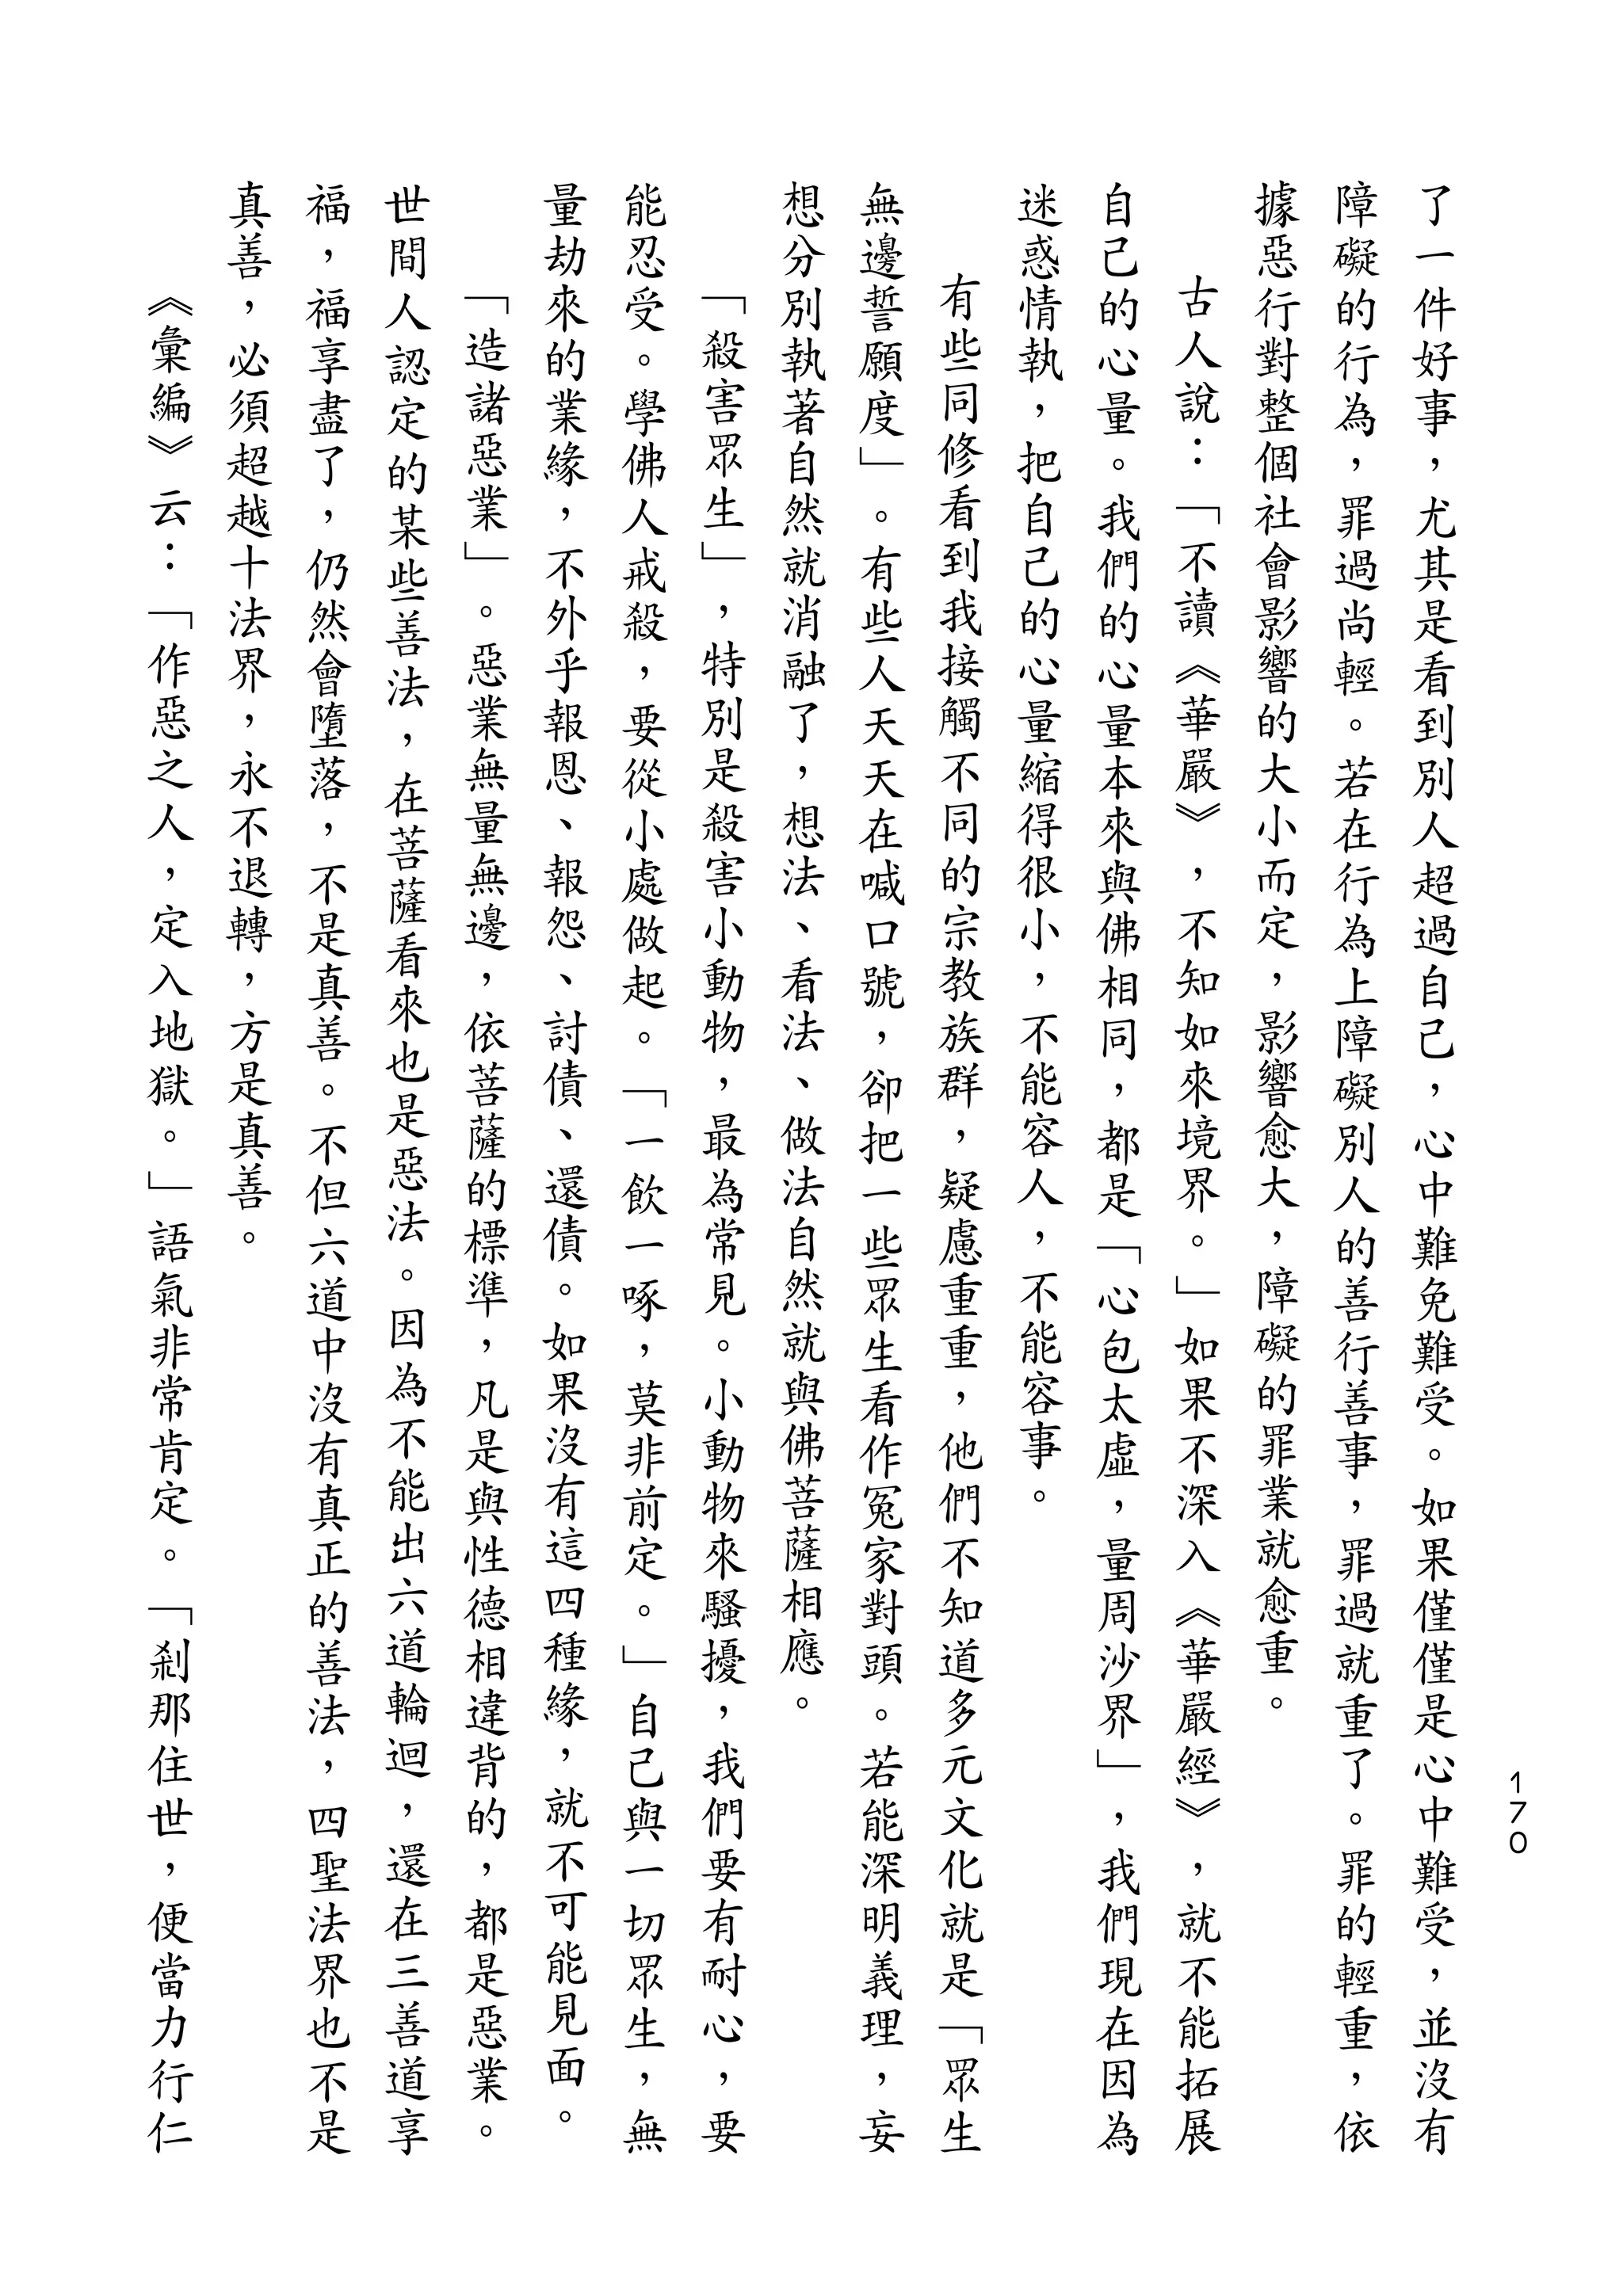 了一件好事，尤其是看到別人超過自己，心中難免難受。如果僅僅是心中難受，並沒有
障礙的行為，罪過尚輕。若在行為上障礙別人的善行善事，罪過就重了。罪的輕重，依
據惡行對整個社會影響的大小而定，影響愈大，障礙的罪業就愈重。
古人說：「不讀《華嚴》，不知如來境界。」如果不深入《華嚴經》，就不能拓展
自己的心量。我們的心量本來與佛相同，都是「心包太虛，量周沙界」，我們現在因為
迷惑情執，把自己的心量縮得很小，不能容人，不能容事。
有些同修看到我接觸不同的宗教族群，疑慮重重，他們不知道多元文化就是「眾生
無邊誓願度」。有些人天天在喊口號，卻把一些眾生看作冤家對頭。若能深明義理，妄
想分別執著自然就消融了，想法、看法、做法自然就與佛菩薩相應。
「殺害眾生」，特別是殺害小動物，最為常見。小動物來騷擾，我們要有耐心，要
能忍受。學佛人戒殺，要從小處做起。「一飲一啄，莫非前定。」自己與一切眾生，無
量劫來的業緣，不外乎報恩、報怨、討債、還債。如果沒有這四種緣，就不可能見面。
「造諸惡業」。惡業無量無邊，依菩薩的標準，凡是與性德相違背的，都是惡業。
世間人認定的某些善法，在菩薩看來也是惡法。因為不能出六道輪迴，還在三善道享
福，福享盡了，仍然會墮落，不是真善。不但六道中沒有真正的善法，四聖法界也不是
真善，必須超越十法界，永不退轉，方是真善。
《彙編》云：「作惡之人，定入地獄。」語氣非常肯定。「剎那住世，便當力行仁
170